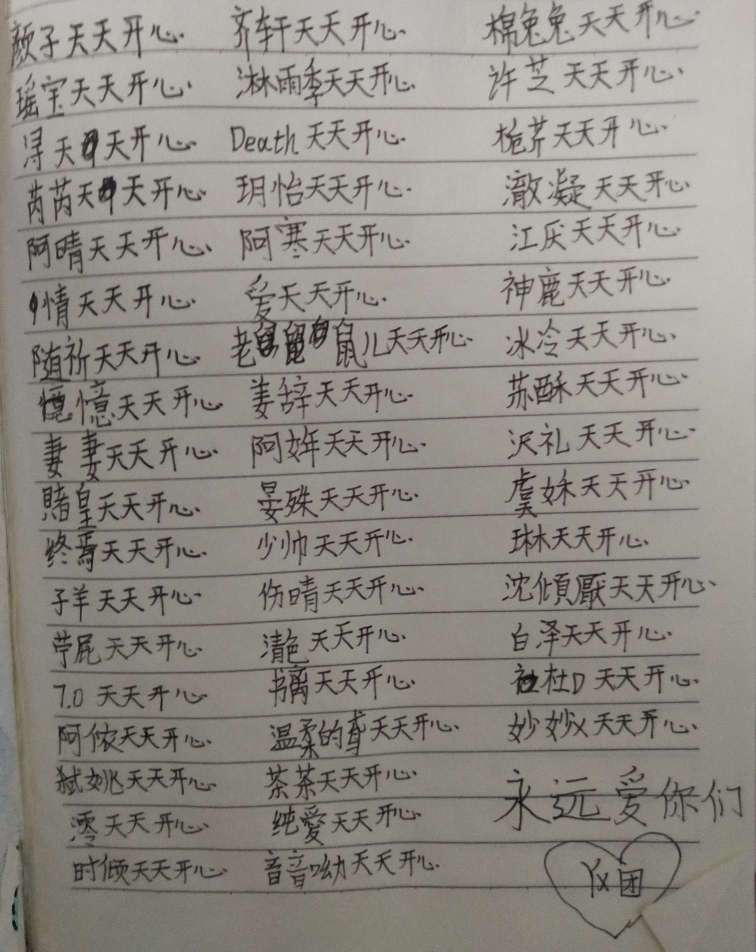 颜子天天开心 齐轩天天开心 棉兔兔天天开心
瑶宝天天开心 淋雨季天天开心 许芝天天开心
浔天天开心 Death天天开心 栀芹天天开心
芮芮天天开心 玥怡天天开心 澈凝天天开心
阿晴天天开心 阿寒天天开心 江厌天天开心
情天天开心 爱天天开心 神鹿天天开心
随祈天天开心 老鼠儿天天开心 冰冷天天开心
憶天天开心 姜辞天天开心 苏酥天天开心
妻妻天天开心 阿姩天天开心 沢礼天天开心
賭皇天天开心 晏殊天天开心 虞姝天天开心
终焉天天开心 少帅天天开心 琳天天开心
子羊天天开心 伤晴天天开心 沈傾厭天天开心
苧屁天天开心 天天开心 白泽天天开心
7.0 天天开心 天天开心 杜D天天开心
阿侬天天开心 温柔的鸢天天开心 妙妙x天天开心
弑姚天天开心 茶茶天天开心
澪天天开心 纯愛天天开心
时倾天天开心 音音呦天天开心
永远爱你们
团